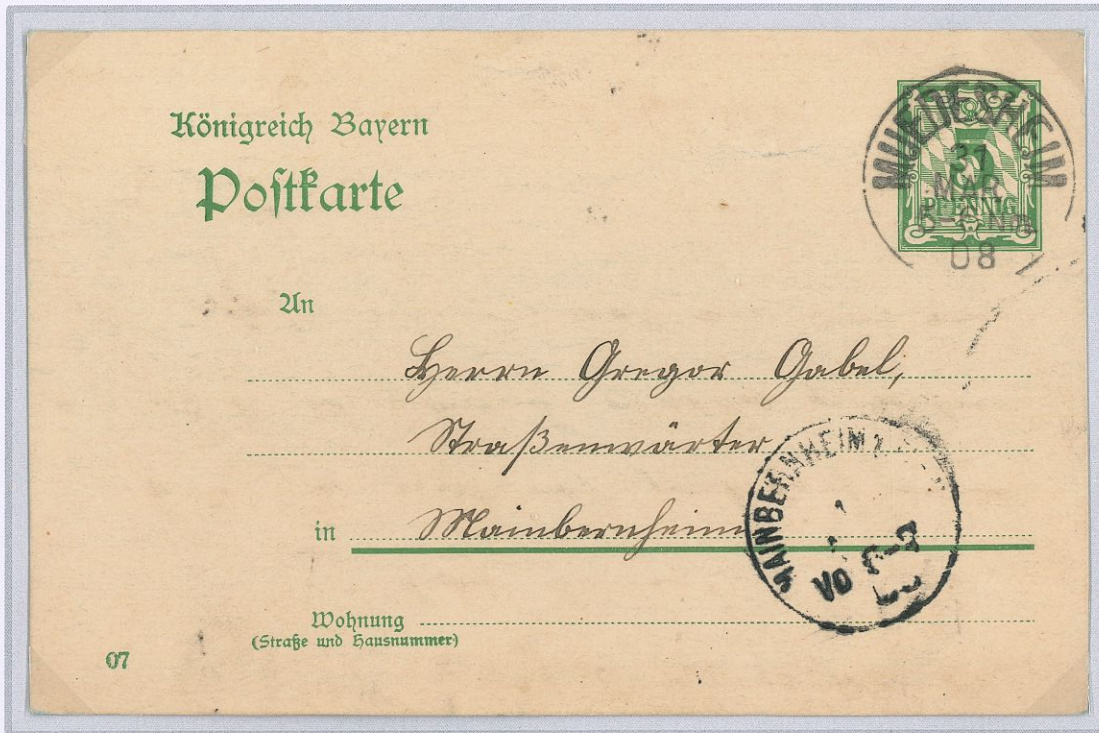 Königreich Bayern
Postkarte
MUEDESHEIM
31
MAR
5
PFENNIG
08
An
Herrn Gregor Gabel,
Straßenwärter
in Mainbernheim
MAINBERNHEIM
VO 6-7
Wohnung
(Straße und Hausnummer)
07